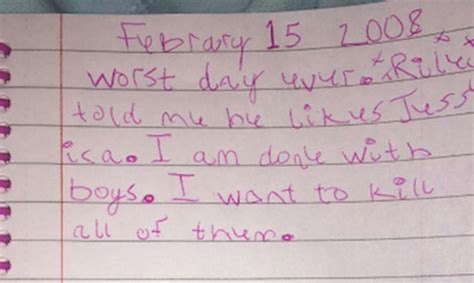 Febrary 15 2008
worst day ever. Riley
told me he likes Jess
isa. I am done with
boys. I want to kill
all of them.